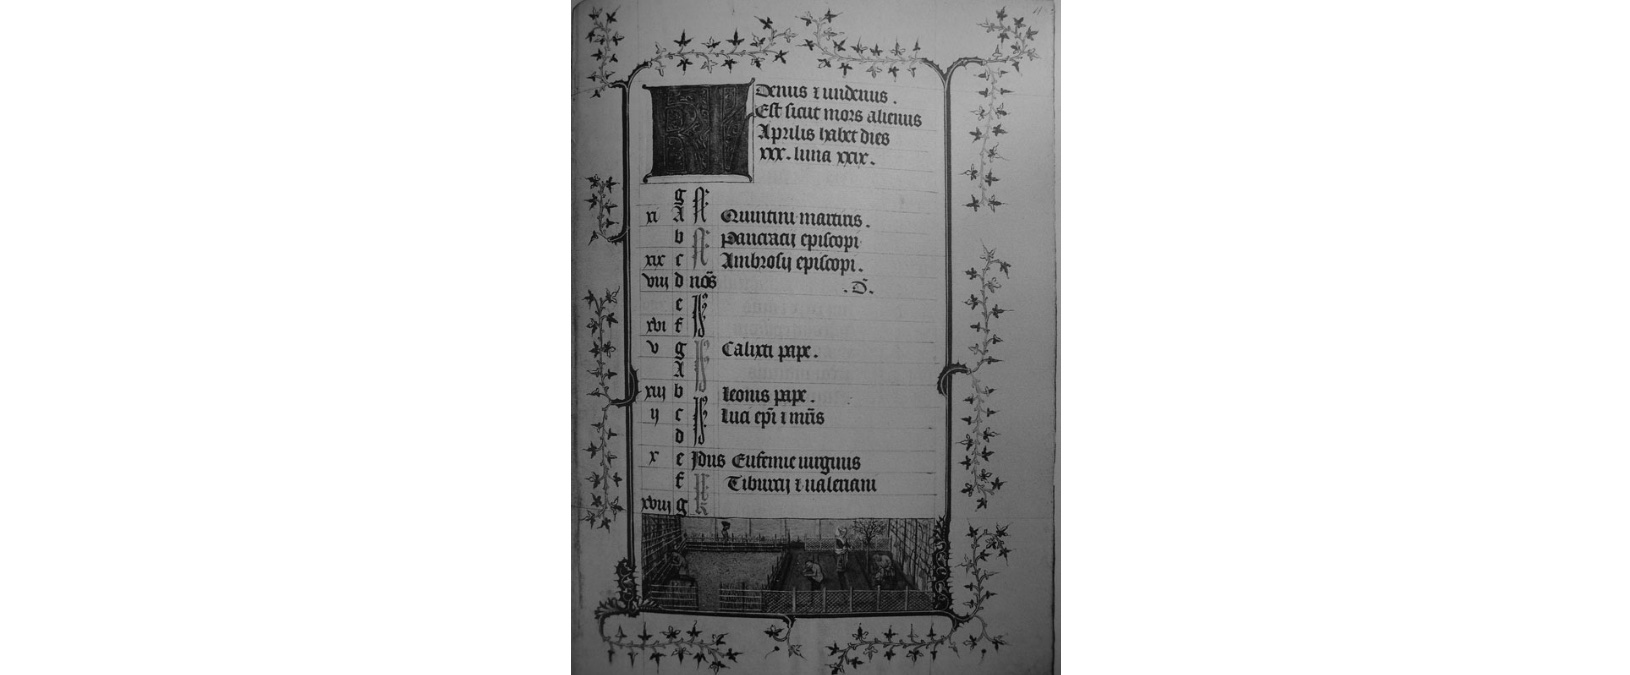 KL
Denus ⁊ undenus.
Est sicut mors alienus
Aprilis habet dies
xxx. luna xxix.
g
xi A Quintini martiris.
b pancracij episcopi
xix c Ambrosij episcopi.
viii d noñs .D̄.
e
xvi f
v g Calixti pape.
A
xiij b leonis pape.
ij c luci ep̄i ⁊ mr̄is
d
x e Jdus Eufemie uirginis
f Tiburcij ⁊ ualeriani
xviii g k